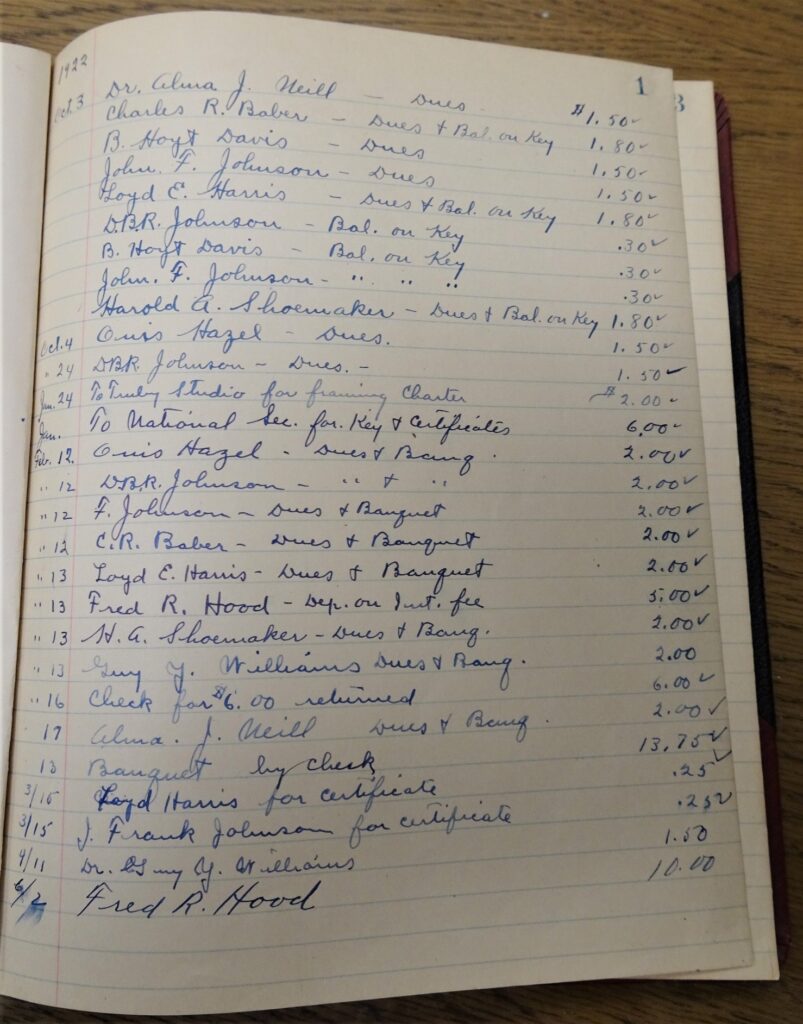 1922
1
3
Oct. 3 Dr. Alma J. Neill — Dues $1.50
Charles R. Baber — Dues & Bal. on Key 1.80
B. Hoyt Davis — Dues 1.50
John. F. Johnson — Dues 1.50
Loyd E. Harris — Dues & Bal. on Key 1.80
D.B.R. Johnson — Bal. on Key .30
B. Hoyt Davis — Bal. on Key .30
John. F. Johnson - " " " .30
Harold A. Shoemaker — Dues & Bal. on Key 1.80
Oct. 4 Onis Hazel — Dues. 1.50
" 24 D.B.R. Johnson — Dues. - 1.50
Jan. 24 To Truby Studio for framing Charter $2.00
Jan. To National Sec. for. Key & Certificates 6.00
Feb. 12. Onis Hazel — Dues & Banq. 2.00
" 12 D.B.R. Johnson — " & " 2.00
" 12 F. Johnson — Dues & Banquet 2.00
" 12 C.R. Baber — Dues & Banquet 2.00
" 13 Loyd E. Harris - Dues & Banquet 2.00
" 13 Fred R. Hood — Dep. on Int. fee 5.00
" 13 H. A. Shoemaker — Dues & Banq. 2.00
" 13 Guy Y. Williams Dues & Banq. 2.00
" 16 Check for $6.00 returned 6.00
17 Alma. J. Neill Dues & Banq. 2.00
13 Banquet by check 13.75
3/15 Loyd Harris for certificate .25
3/15 J. Frank Johnson for certificate .25
4/11 Dr. Guy Y. Williams 1.50
6/2 Fred R. Hood 10.00